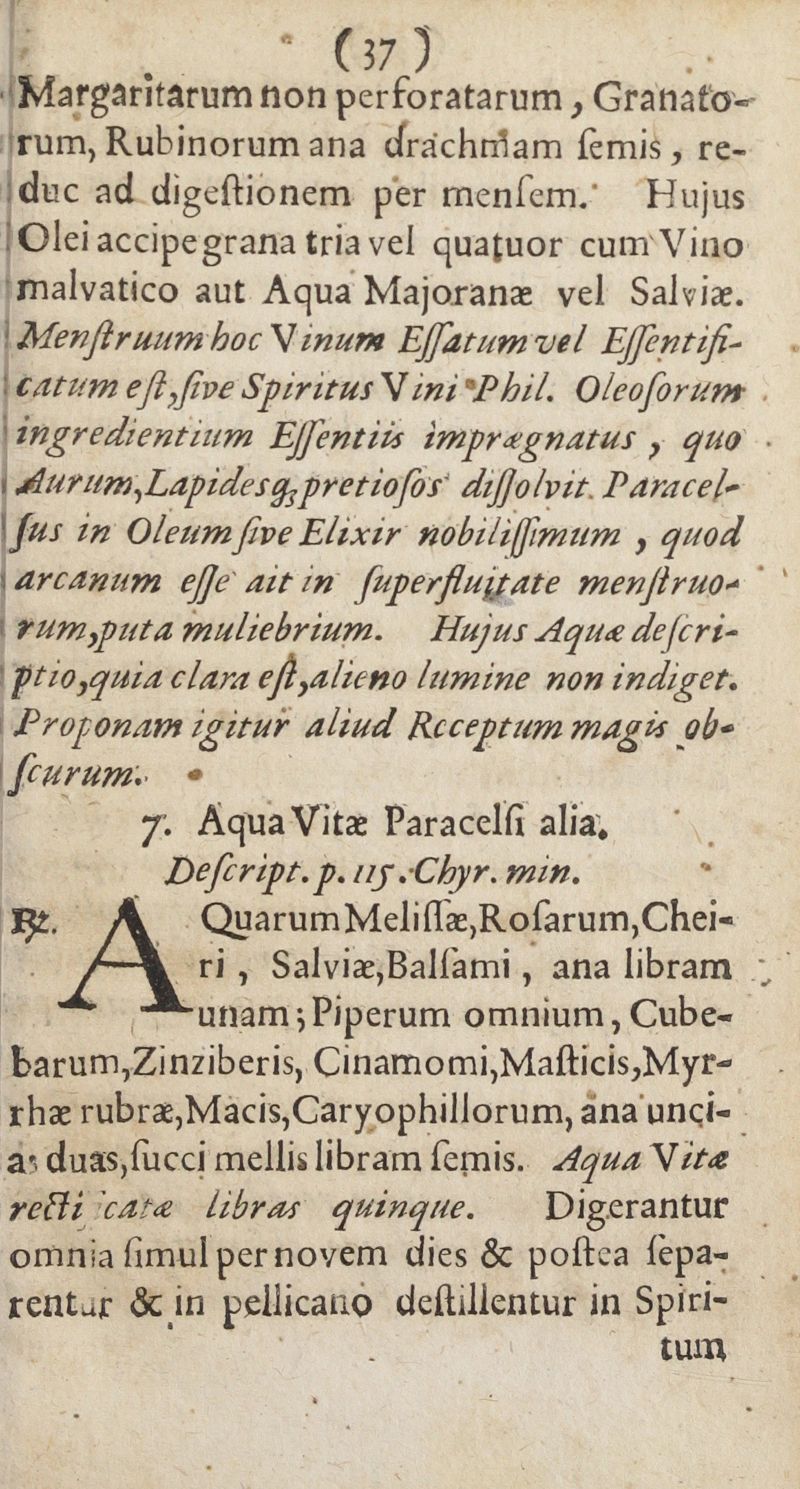 (37)
Margaritarum non perforatarum, Granato-
rum, Rubinorum ana drachmam ſemis, re-
duc ad digeſtionem per menſem. Hujus
Olei accipe grana tria vel quatuor cum Vino
malvatico aut Aqua Majoranæ vel Salviæ.
Menſtruum hoc Vinum Eſſatum vel Eſſentifi-
catum eſt, ſive Spiritus Vini Phil. Oleoſorum
ingredientium Eſſentiis imprægnatus, quo
Aurum, Lapidesq; pretioſos diſſolvit Paracel-
ſus in Oleum ſive Elixir nobiliſſimum, quod
arcanum eſſe ait in ſuperfluitate menſtruo-
rum, puta muliebrium. Hujus Aquæ deſcri-
ptio, quia clara eſt, alieno lumine non indiget.
Proponam igitur aliud Receptum magis ob-
ſcurum.
7. Aqua Vitæ Paracelſi alia.
Deſcript. p. 115. Chyr. min.
℞. AQuarum Meliſſæ, Roſarum, Chei-
ri, Salviæ, Balſami, ana libram
unam; Piperum omnium, Cube-
barum, Zinziberis, Cinamomi, Maſticis, Myr-
rhæ rubræ, Macis, Caryophillorum, ana unci-
as duas, ſucci mellis libram ſemis. Aqua Vitæ
rectificatæ libras quinque. Digerantur
omnia ſimul per novem dies & poſtea ſepa-
rentur & in pellicano deſtillentur in Spiri-
tum